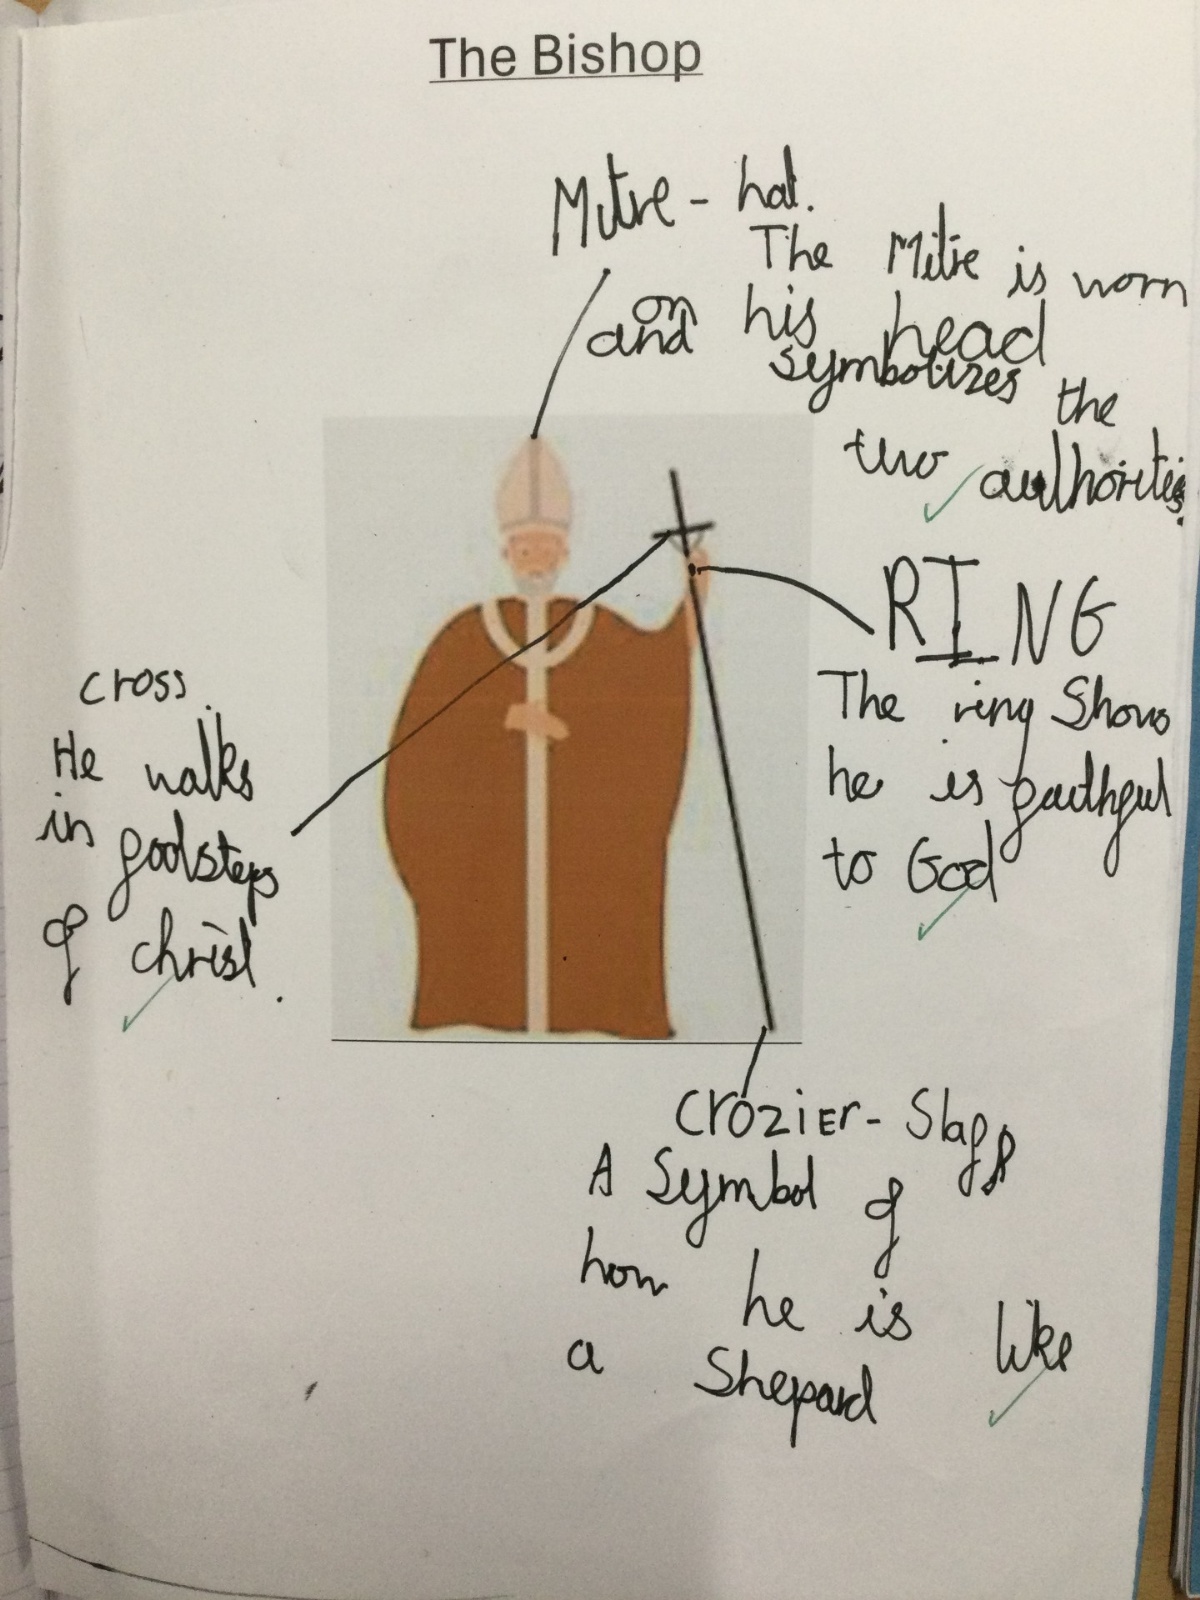 The Bishop
Mitre - hat.
The Mitre is worn
on his head
and symbolizes the
two authorities.
RING
The ring Shows
he is faithful
to God
cross.
He walks
in footsteps
of christ.
CROZiER - Staff
A Symbol of
how he is like
a Shepard